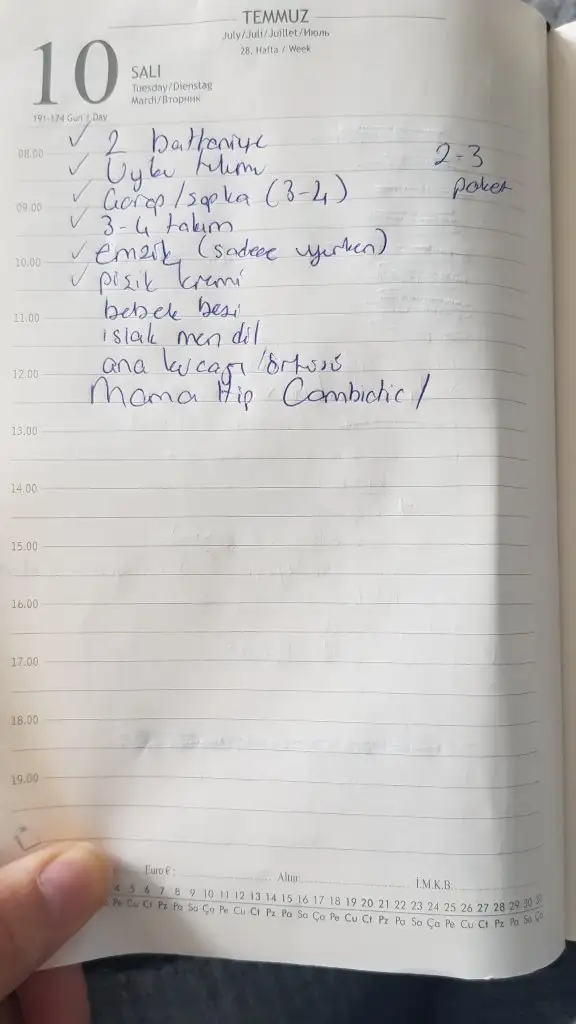 TEMMUZ
July/Juli/Juillet/Июль
28. Hafta / Week
10
SALI
Tuesday/Dienstag
Mardi/Вторник
191-174 Gün / Day
08.00
✓ 2 battaniye
2-3
paket
✓ Uyku tulumu
09.00
✓ Çorap/şapka (3-4)
✓ 3-4 takım
10.00
✓ emzik (sadece uyurken)
✓ pişik kremi
11.00
bebek bezi
ıslak mendil
12.00
ana kucağı/örtüsü
Mama Hip Combiotic/
13.00
14.00
15.00
16.00
17.00
18.00
19.00
Euro €:
Altın:
İ.M.K.B.
4 5 6 7 8 9 10 11 12 13 14 15 16 17 18 19 20 21 22 23 24 25 26 27 28 29 30 31
Pe Cu Ct Pz Pa Sa Ça Pe Cu Ct Pz Pa Sa Ça Pe Cu Ct Pz Pa Sa Ça Pe Cu Ct Pz Pa Sa Ça